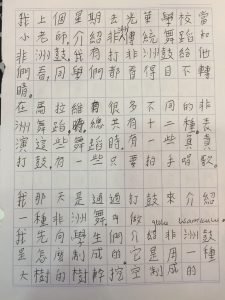 我上個星期去光華學校當
小老師,介紹非洲傳統舞蹈和
非洲鼓。我有打非洲鼓給他
們看,同學們都看得目不轉
睛。
在馬拉維有很多不同的非
洲舞蹈,總共有十二種。表
演這些舞蹈時,有一些真員
打鼓,有一些只要拍手唱歌。
我那天是通過打鼓來介紹
一種非洲舞,叫做 gule wamkulu.
我先向學生們介紹非洲鼓
是怎麽制成的。它是用一種
大樹的樹幹挖空制成的